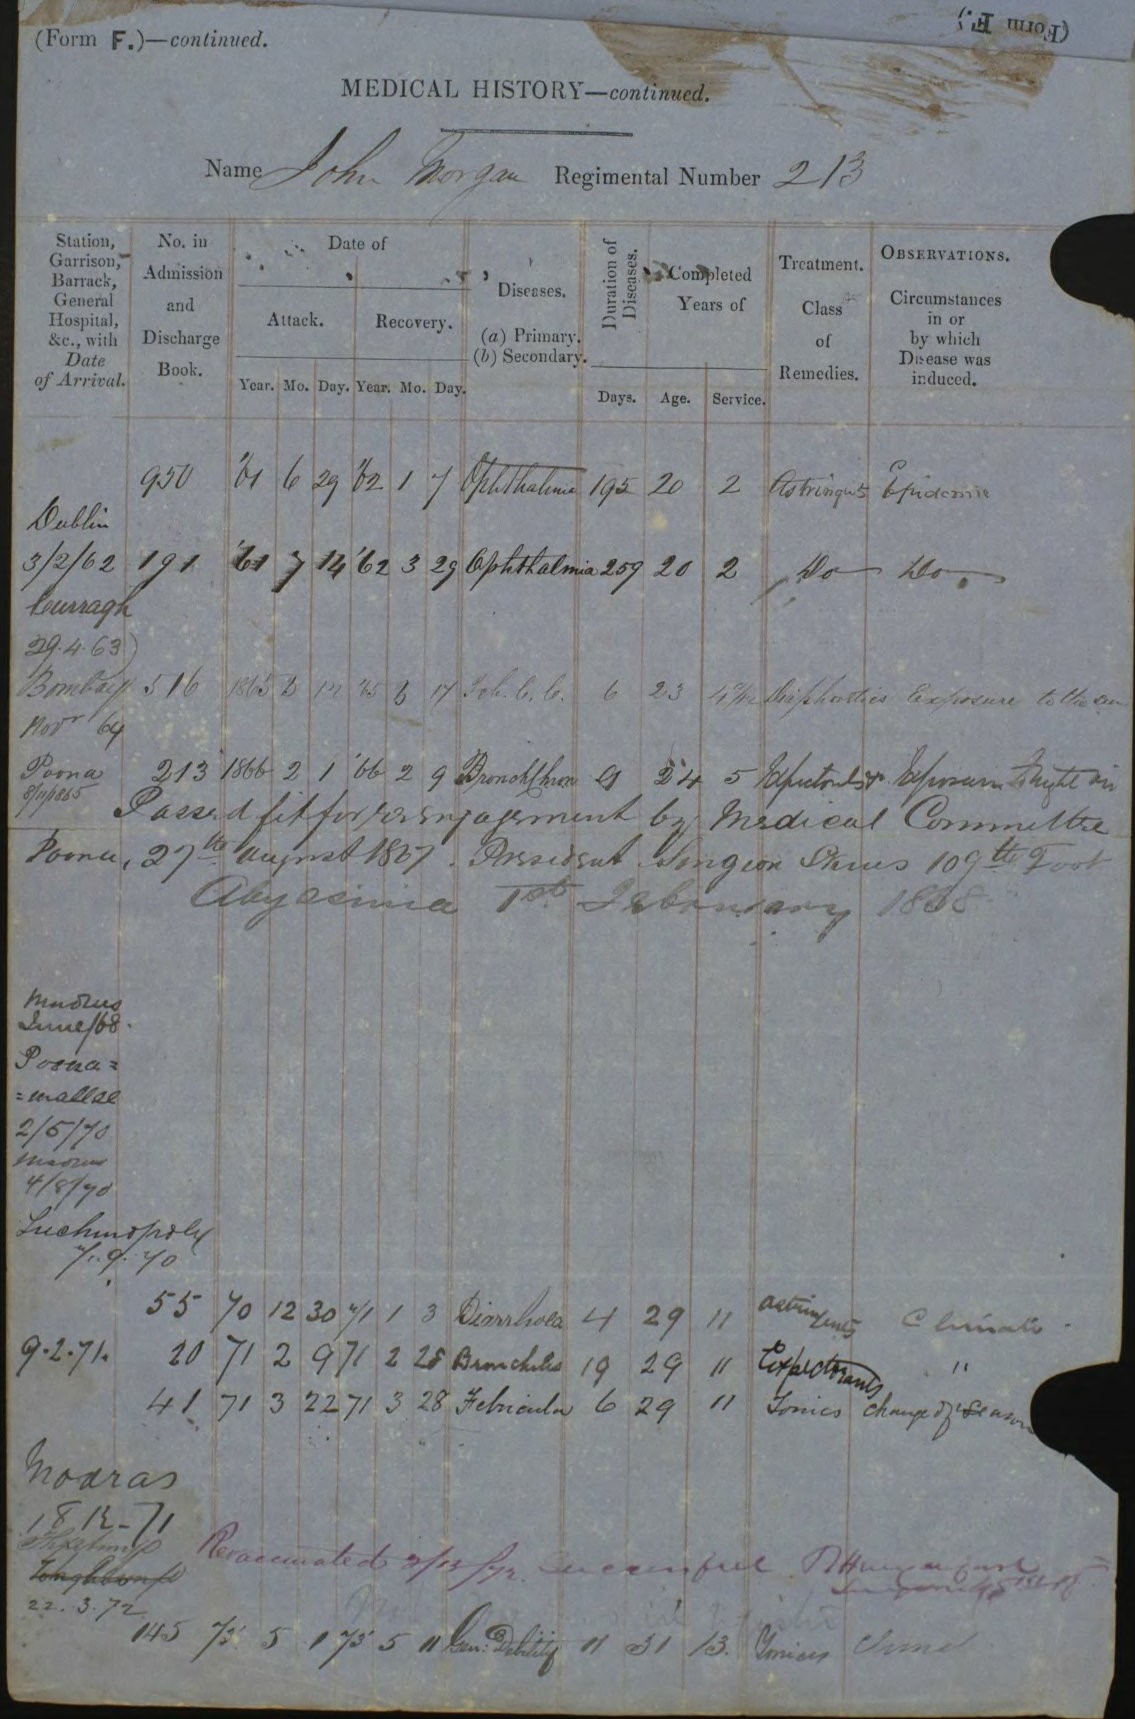 (Form F.)
(Form F.)—continued.
MEDICAL HISTORY—continued.
Name John Morgan Regimental Number 213
Station, Garrison, Barrack, General Hospital, &c., with Date of Arrival.
No. in Admission and Discharge Book.
Date of
Attack.
Recovery.
Year. Mo. Day. Year. Mo. Day.
Diseases.
(a) Primary.
(b) Secondary.
Duration of Diseases.
Days.
Completed Years of
Age. Service.
Treatment.
Class of Remedies.
OBSERVATIONS.
Circumstances in or by which Disease was induced.
950 '61 6 29 '62 1 7 Ophthalmia 195 20 2 Astringents Epidemic
Dublin
3/2/62 191 '61 7 14 '62 3 29 Ophthalmia 259 20 2 Do Do
Curragh
29.4.63
Bombay 516 1865 6 '65 6 17 Feb. C. C. 6 23 Diaphoretics Exposure to the sun
Novr 64
Poona 213 1866 2 1 '66 2 9 Bronch Chron 9 24 5 Expectorants Exposure to night air
8/11/1865
Passed fit for re engagement by Medical Committee
Poona, 27th August 1867. President Surgeon 109th Foot
Abyssinia 1st February 1868
Madras
June/68.
Poona=
=mallee
2/5/70
Madras
4/8/70
Trichinopoly
9.70
55 70 12 30 71 1 3 Diarrhoea 4 29 11 astringents Climatic
9.2.71. 20 71 2 9 71 2 28 Bronchitis 19 29 11 Expectorants "
41 71 3 22 71 3 28 Febricula 6 29 11 Tonics change of Season
Madras
18 12-71
Revaccinated successful
22.3.72
145 73 5 1 73 5 11 Gen: Debility 11 31 13. Tonics